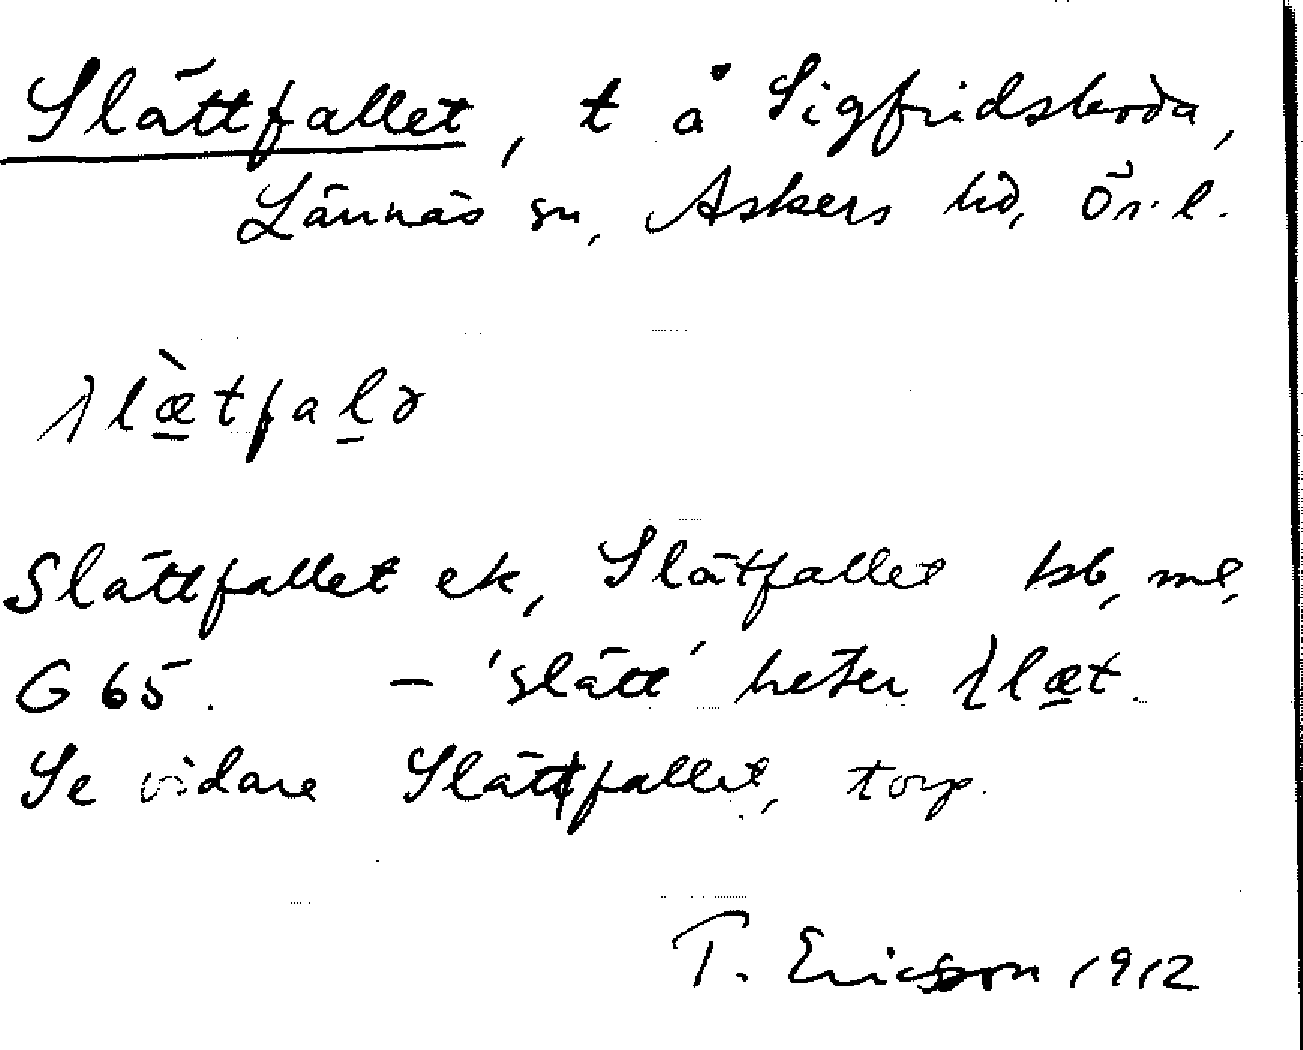 Slättfallet, t å Sigfridsboda,
Lännäs sn, Askers hd, Ör. l.
slæ̀tfalə
Slättfallet ek, Slätfallet hsb, ml,
G 65. – 'slätt' heter slæt.
Se vidare Slättfallet, torp.
T. Ericsson 1912